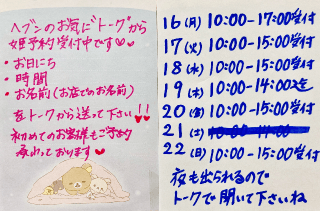 ヘブンのお気に"トーク"から
姫予約受付中です♥♥
・お日にち
・時間
・お名前(お店でのお名前)
をトークから送って下さい!!
初めてのお客様もご予約
承っております♥
16(月) 10:00-17:00受付
17(火) 10:00-15:00受付
18(水) 10:00-15:00受付
19(木) 10:00-14:00迄
20(金) 10:00-15:00受付
21(土) 10:00-14:00
22(日) 10:00-15:00受付
夜も出られるので
トークで聞いて下さいね